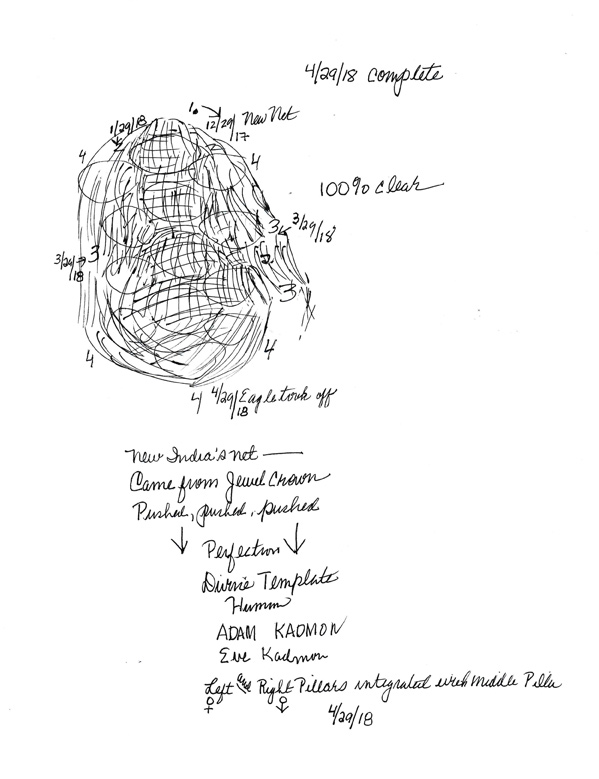 4/29/18 complete
1.
1/29/18
12/29/17 New Net
4
4
100% clear
3
3/29/18
3/29/18
3
2
3
4
4
4 4/29/18 Eagle took off
New India's net —
Came from Jewel Crown
Pushed, pushed, pushed
↓ Perfection ↓
Divine Template
Human
ADAM KADMON
Eve Kadmon
Left and Right Pillars integrated with Middle Pillar
♀
4/29/18